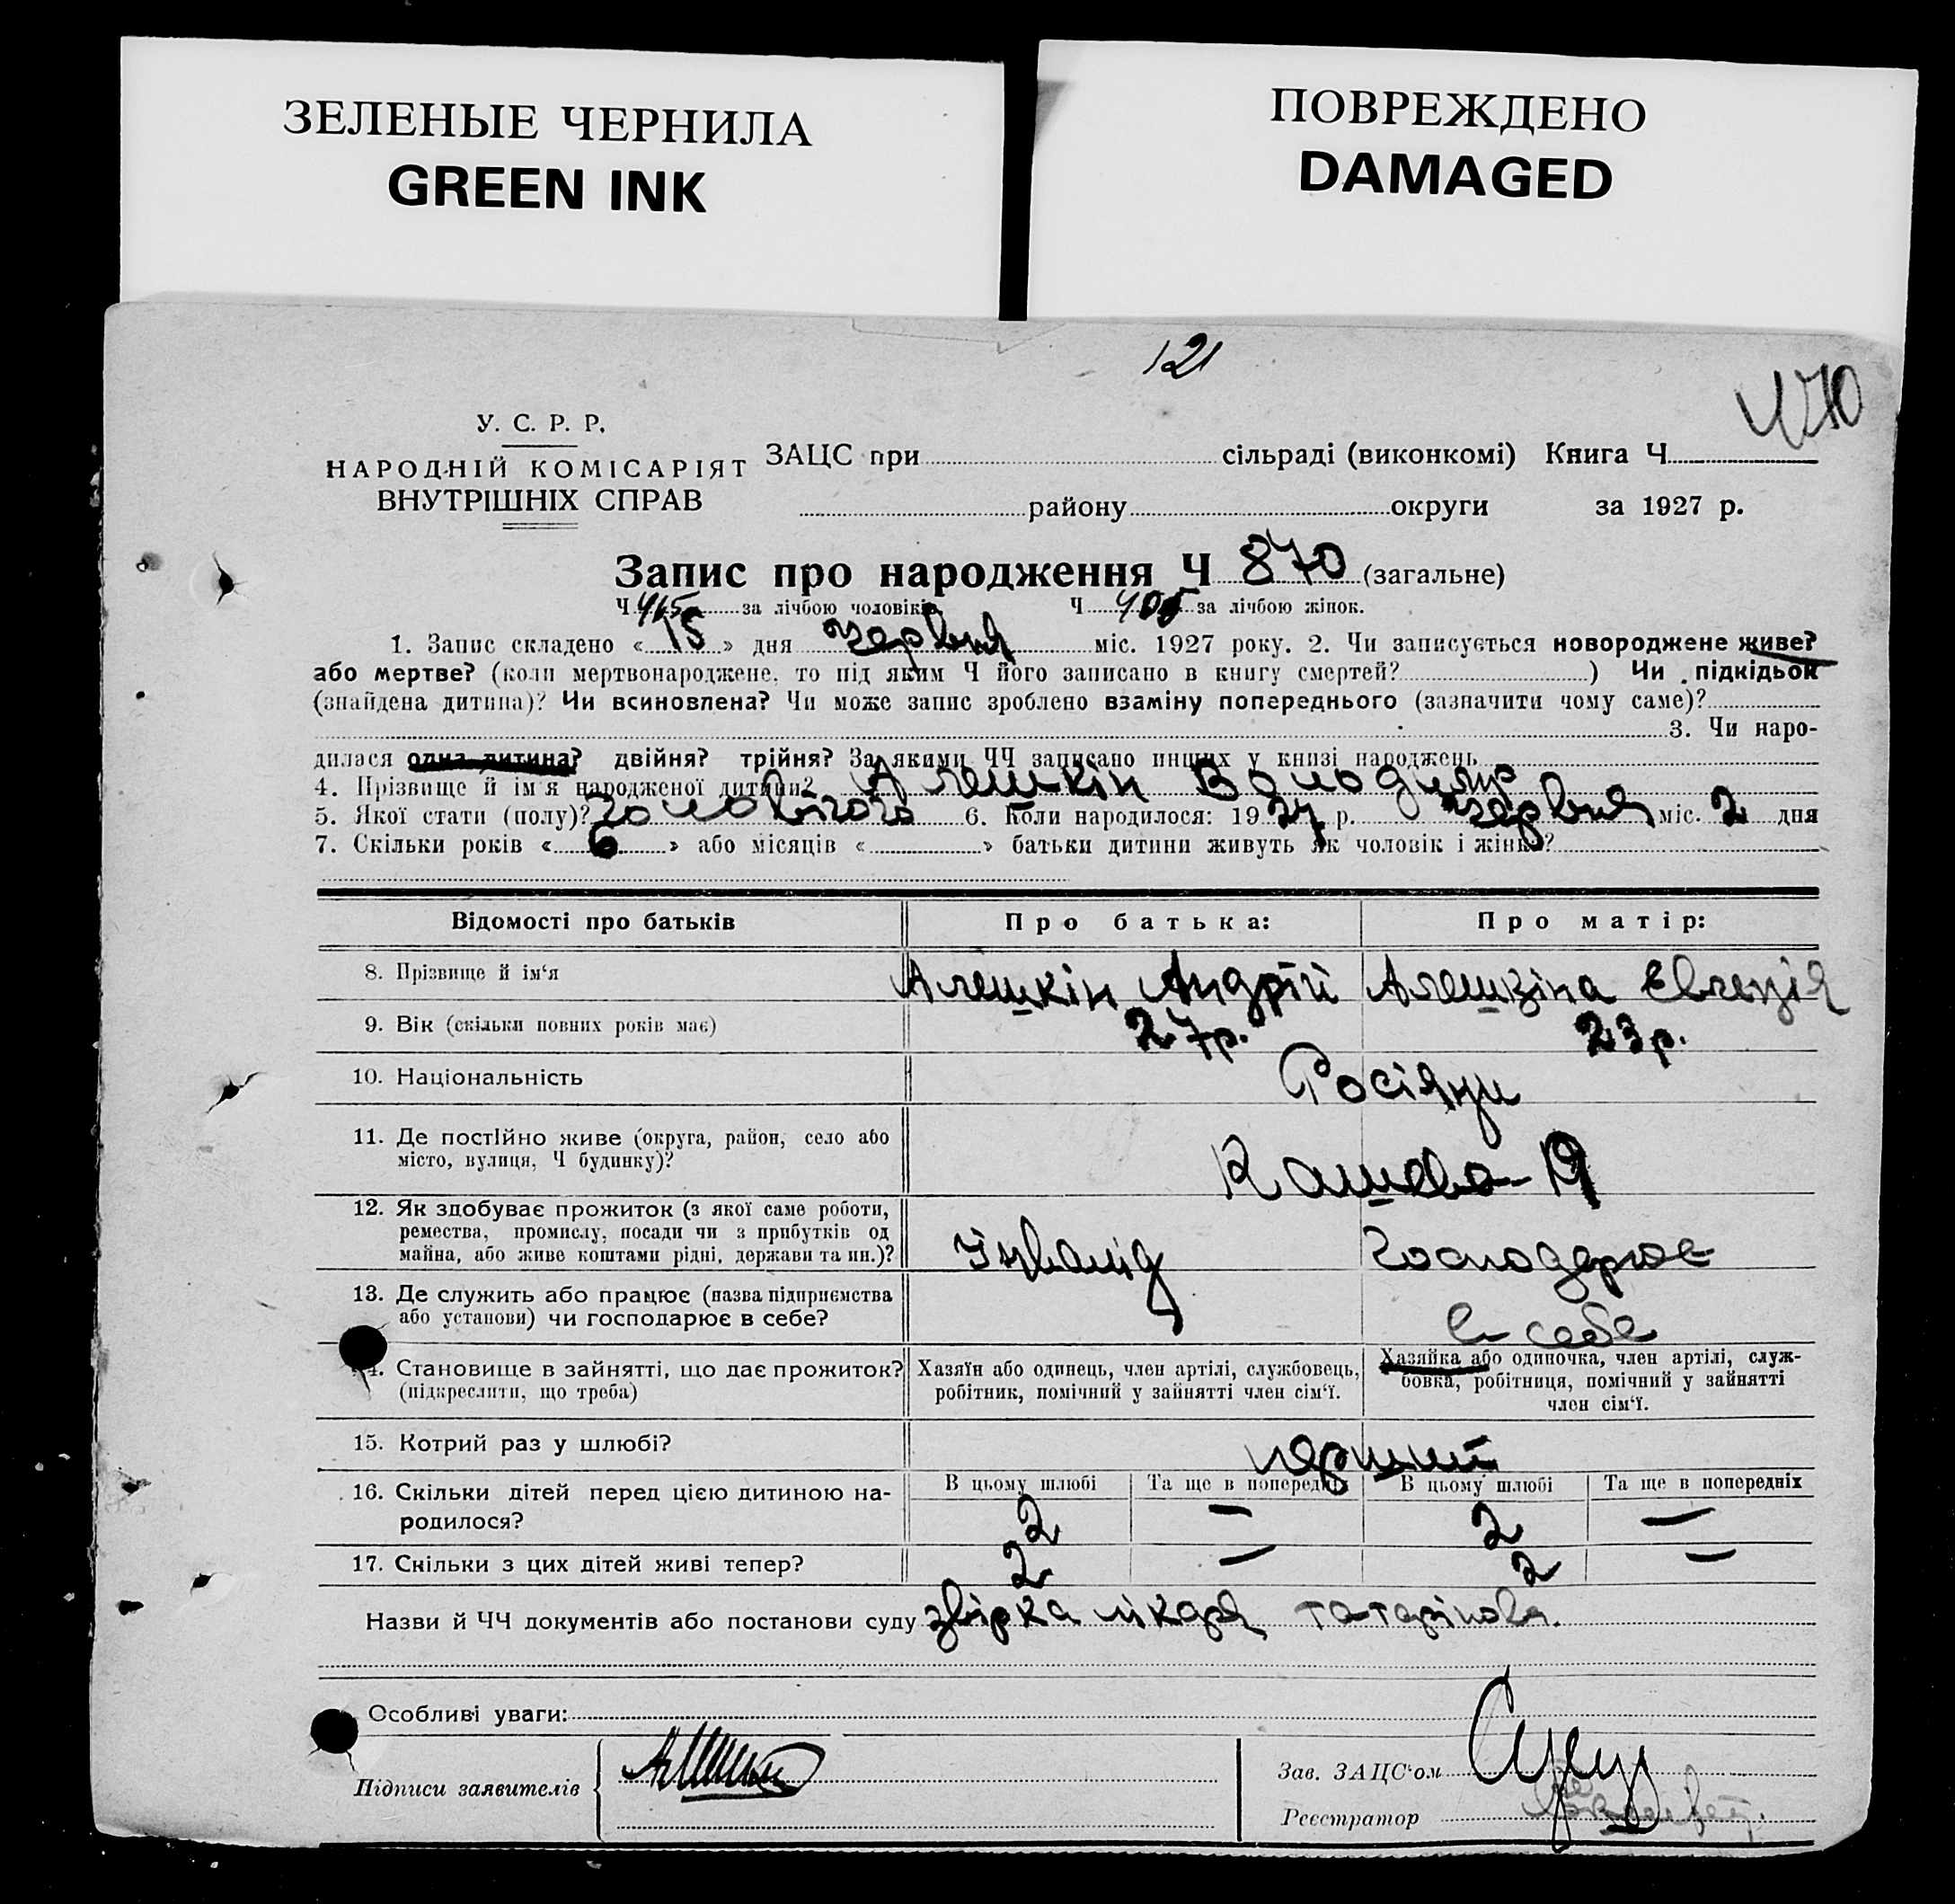 ЗЕЛЕНЫЕ ЧЕРНИЛА
GREEN INK
ПОВРЕЖДЕНО
DAMAGED
121
У. С. Р. Р.
НАРОДНІЙ КОМІСАРІЯТ
ВНУТРІШНІХ СПРАВ
ЗАЦС при сільраді (виконкомі) Книга Ч
району округи за 1927 р.
Запис про народження Ч 870 (загальне)
Ч 465 за лічбою чоловіків. Ч 405 за лічбою жінок.
1. Запис складено « 15 » дня червня міс. 1927 року. 2. Чи записується новороджене живе?
або мертве? (коли мертвонароджене, то під яким Ч його записано в книгу смертей? ) Чи підкідьок
(знайдена дитина)? Чи всиновлена? Чи може запис зроблено взаміну попереднього (зазначити чому саме)?
3. Чи наро-
дилася одна дитина? двійня? трійня? За якими ЧЧ записано инших у книзі народжень
4. Прізвище й ім'я народженої дитини? Алешкін Володимир
5. Якої стати (полу)? чоловічого 6. Коли народилося: 1927 р. червня міс. 2 дня
7. Скільки років « 6 » або місяців « » батьки дитини живуть як чоловік і жінка?
Відомості про батьків Про батька: Про матір:
8. Прізвище й ім'я Алешкін Андрій Алешкіна Евгенія
9. Вік (скільки повних років має) 27 р. 23 р.
10. Національність Росіяни
11. Де постійно живе (округа, район, село або
місто, вулиця, Ч будинку)? 19
12. Як здобуває прожиток (з якої саме роботи,
ремества, промислу, посади чи з прибутків од
майна, або живе коштами рідні, держави та ин.)? Інвалід Господарює
13. Де служить або працює (назва підприємства
або установи) чи господарює в себе? в себе
14. Становище в зайнятті, що дає прожиток?
(підкреслити, що треба)
Хазяїн або одинець, член артілі, службовець,
робітник, помічний у зайнятті член сім'ї.
Хазяйка або одиночка, член артілі, служ-
бовка, робітниця, помічний у зайнятті
член сім'ї.
15. Котрий раз у шлюбі? перший
16. Скільки дітей перед цією дитиною на-
родилося?
В цьому шлюбі Та ще в попередніх В цьому шлюбі Та ще в попередніх
2 — 2 —
17. Скільки з цих дітей живі тепер? 2 — 2 —
Назви й ЧЧ документів або постанови суду лікаря Татарінова.
Особливі уваги:
Підписи заявителів
Зав. ЗАЦС'ом
Реєстратор